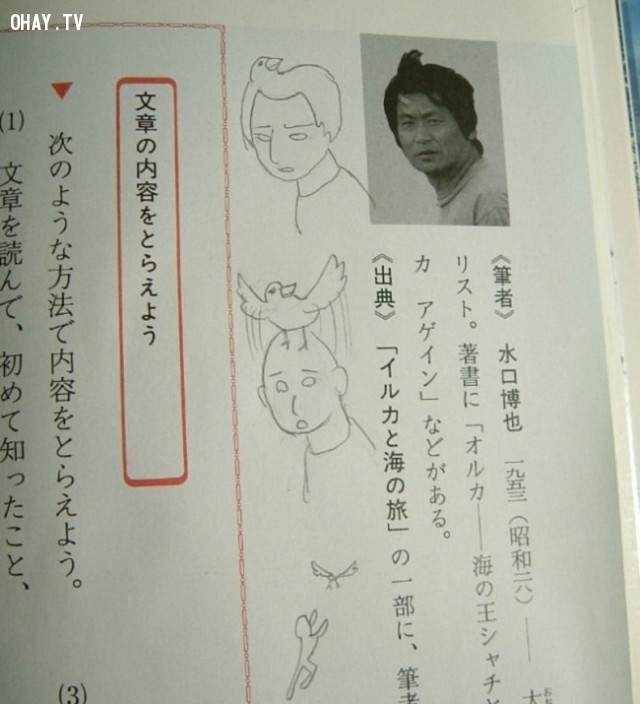 OHAY.TV
《筆者》 水口博也 一九五三(昭和二八)—— 大
おお
リスト。著書に「オルカ——海の王シャチと
カ アゲイン」などがある。
《出典》 「イルカと海の旅」の一部に、筆者
文章の内容をとらえよう
▼ 次のような方法で内容をとらえよう。
(1) 文章を読んで、初めて知ったこと、
(3)